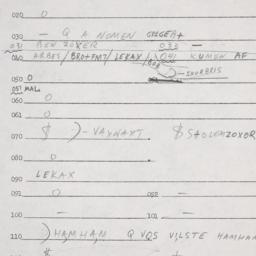 020 O
030 — Q A NOMEN GEGEB+
031 BEN ZOXER 032 —
040 ARBES/BRO+FMT/LEKAX/ 041 KUMEN AF
SHORBRIS
050 O
051 MAL.
060 O
061 O
070 $ )-VAYNAXT $ STOLENZOXOR
080 O
090 LEKAX
091 O 092 —
100 — 101 —
110 )HAMHAN Q VOS VILSTE HAMHAN